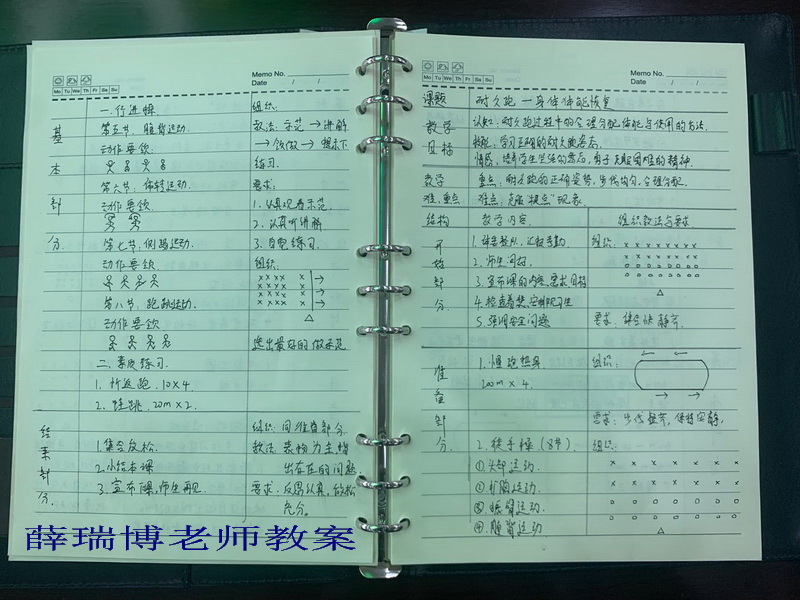 Memo No.
Date / /
Mo Tu We Th Fr Sa Su
一.行进操
第五节.腹背运动.
动作要领
第六节.体转运动.
动作要领
第七节.侧马运动.
动作要领
第八节.跑跳运动.
动作要领
二.素质练习.
1. 折返跑.10×4.
2. 蛙跳.20m×2.
基
本
部
分
组织:
教法:示范→讲解
练习.
要求:
1.认真观看示范.
2.认真听讲解
3.自觉练习.
组织:
选出最好的做示范
结束部分.
1.集合放松.
2.小结本课
3.宣布下课,师生再见
组织:同准备部分.
教法:表扬为主,指
出存在的问题
要求:反思认真,放松
充分.
薛瑞博老师教案
Memo No.
Date / /
Mo Tu We Th Fr Sa Su
课题
耐久跑—身体体能恢复
教学
目标
认知:耐久跑过程中的合理分配体能与使用的方法.
教学
难、重点
重点:耐久跑的正确姿势,步伐均匀,合理分配.
难点:克服"极点"现象
结构
教学内容
组织教法与要求
开
始
部
分.
2.师生问好.
3.宣布课的内容,要求目标
5.强调安全问题
组织:
要求:集合快静齐.
准
备
部
分.
1.慢跑热身
200m×4.
组织:
要求:步伐整齐,保持安静.
2.徒手操(8节)
①头部运动.
②扩胸运动.
③腰部运动.
④腹背运动
组织: